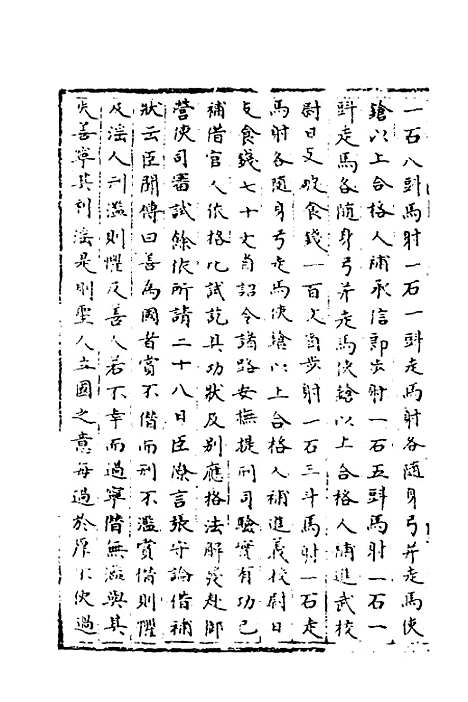 一石八㪷馬射一石一㪷走馬射各隨身弓并走馬使
鎗以上合格人補承信郎步射一石五㪷馬射一石一
㪷走馬各隨身弓并走馬使鎗以上合格人補進武校
尉日支破食錢一百文省步射一石三斗馬射一石走
馬射各隨身弓走馬使鎗以上合格人補進義校尉日
支食錢七十文省詔令諸路安撫提刑司驗實有功已
補借官人依格比試訖具功狀及別應格法解發赴御
營使司審試餘依所請二十八日臣僚言張守論借補
狀云臣聞傳曰善為國者賞不僭而刑不濫賞僭則懼
及淫人刑濫則懼及善人若不幸而過寧僭無濫與其
失善寧其利淫是則聖人立國之意每過於厚不使過